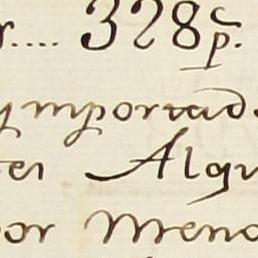 r.... 328 p.
y mportad
tes Alqu
por Meno